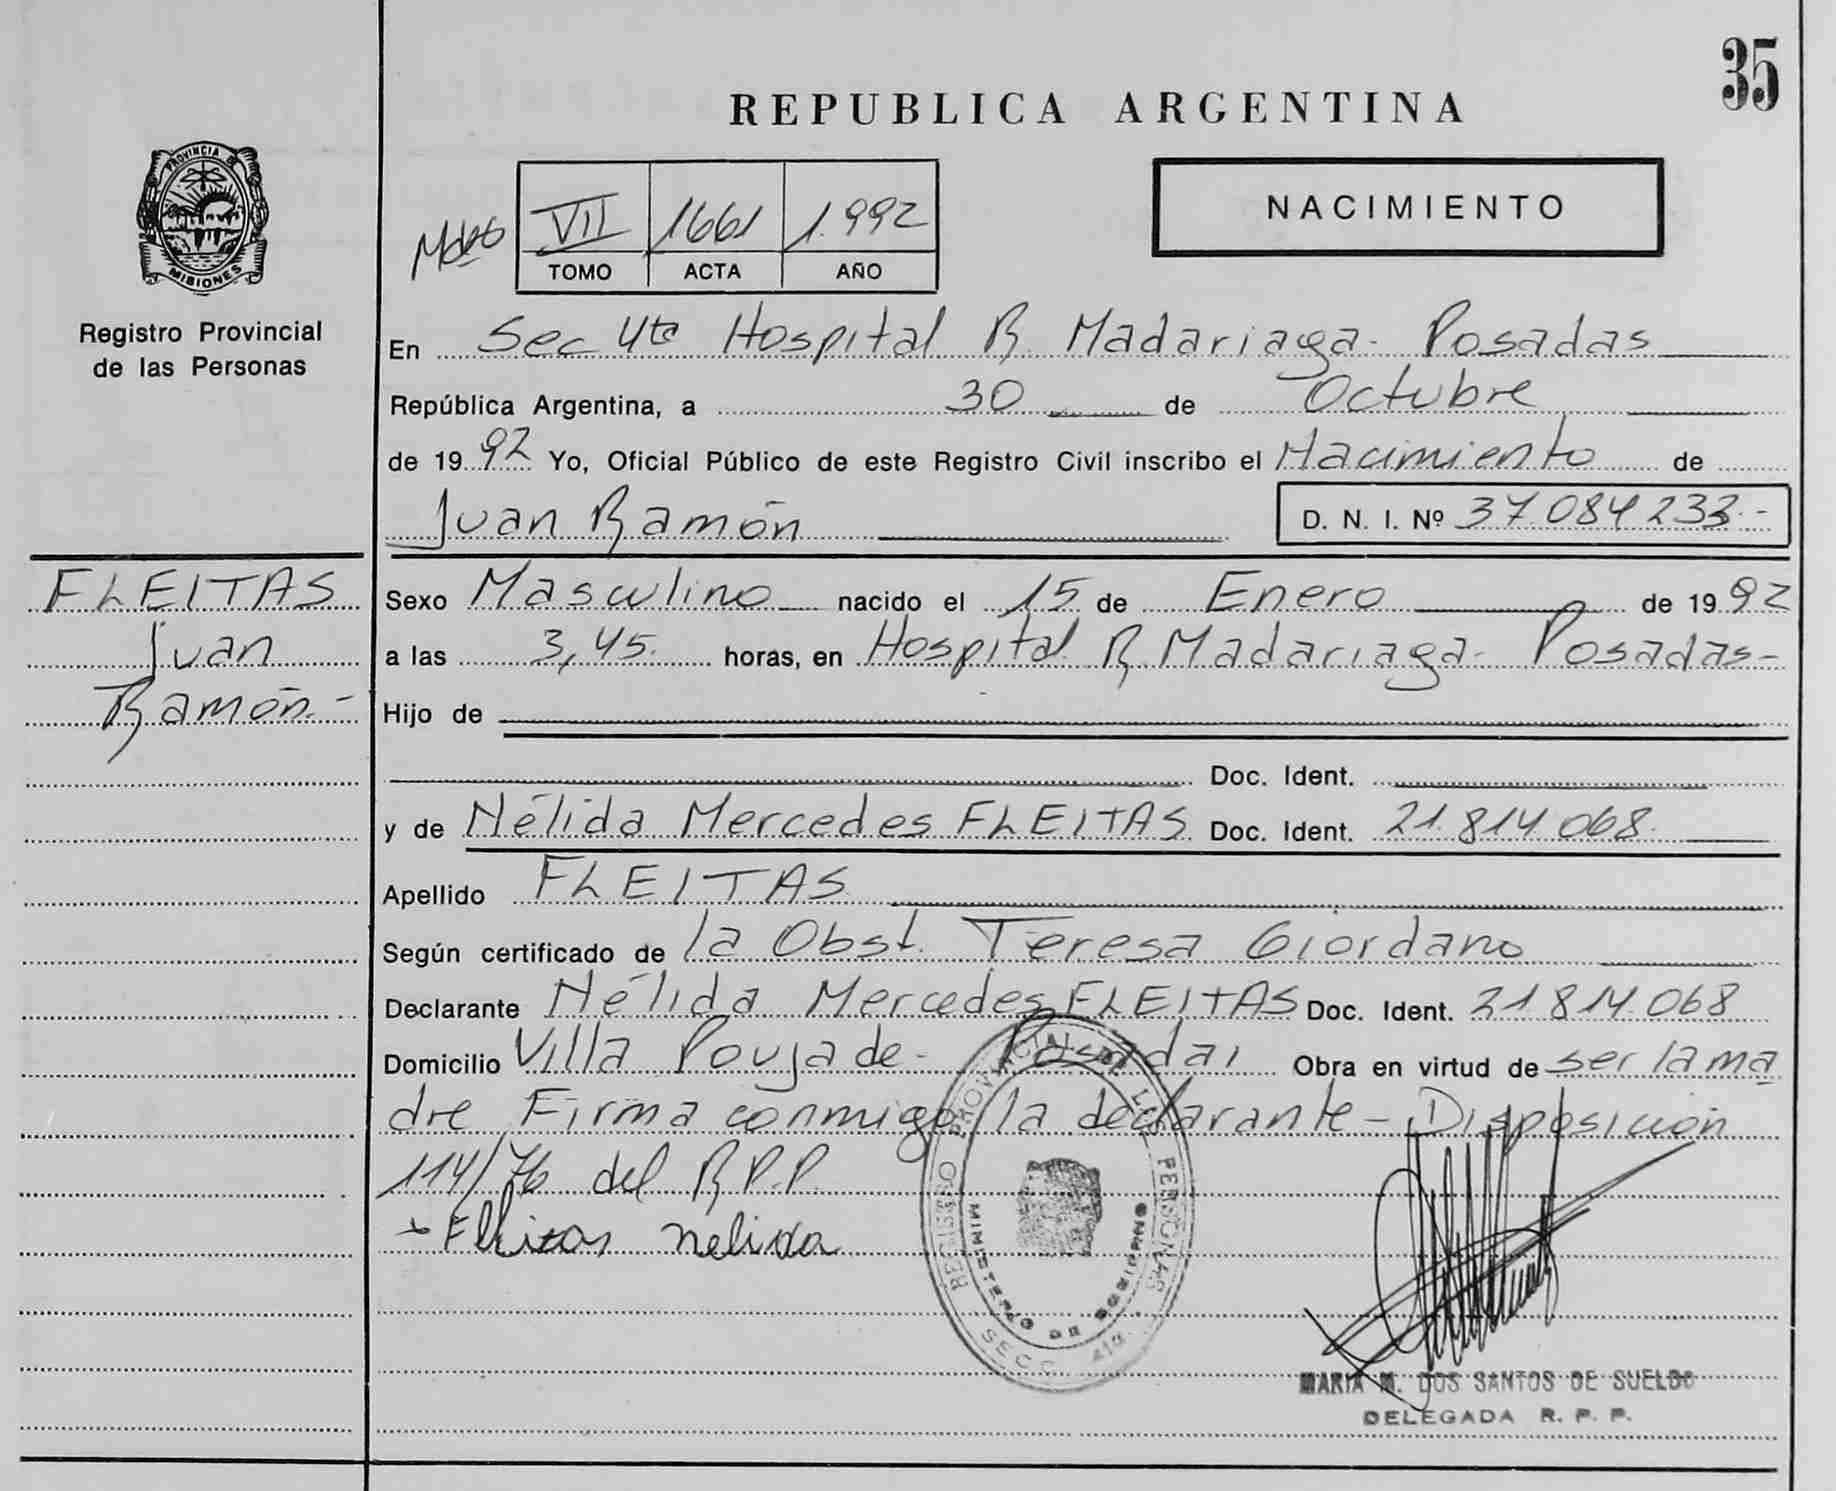 35
REPUBLICA ARGENTINA
PROVINCIA DE
MISIONES
Registro Provincial
de las Personas
VII 1661 1.992
TOMO ACTA AÑO
NACIMIENTO
En Sec 4ta Hospital R. Madariaga - Posadas
República Argentina, a 30 de Octubre
de 1992 Yo, Oficial Público de este Registro Civil inscribo el Nacimiento de
Juan Ramón D. N. I. Nº 37.084.233.-
FLEITAS
Juan
Ramón.-
Sexo Masculino nacido el 15 de Enero de 1992
a las 3,45. horas, en Hospital R. Madariaga - Posadas -
Hijo de
Doc. Ident.
y de Nélida Mercedes FLEITAS Doc. Ident. 21.814.068.
Apellido FLEITAS
Según certificado de la Obst. Teresa Giordano
Declarante Nélida Mercedes FLEITAS Doc. Ident. 21.814.068
Domicilio Villa Poujade - Posadas Obra en virtud de ser la ma
dre Firma conmigo la declarante - Disposición
114/76 del R.P.P.
Fleitas nelida
REGISTRO PROVINCIAL DE LAS PERSONAS
MINISTERIO DE GOBIERNO
SECC. 4ta
MARIA M. DOS SANTOS DE SUELDO
DELEGADA R. P. P.